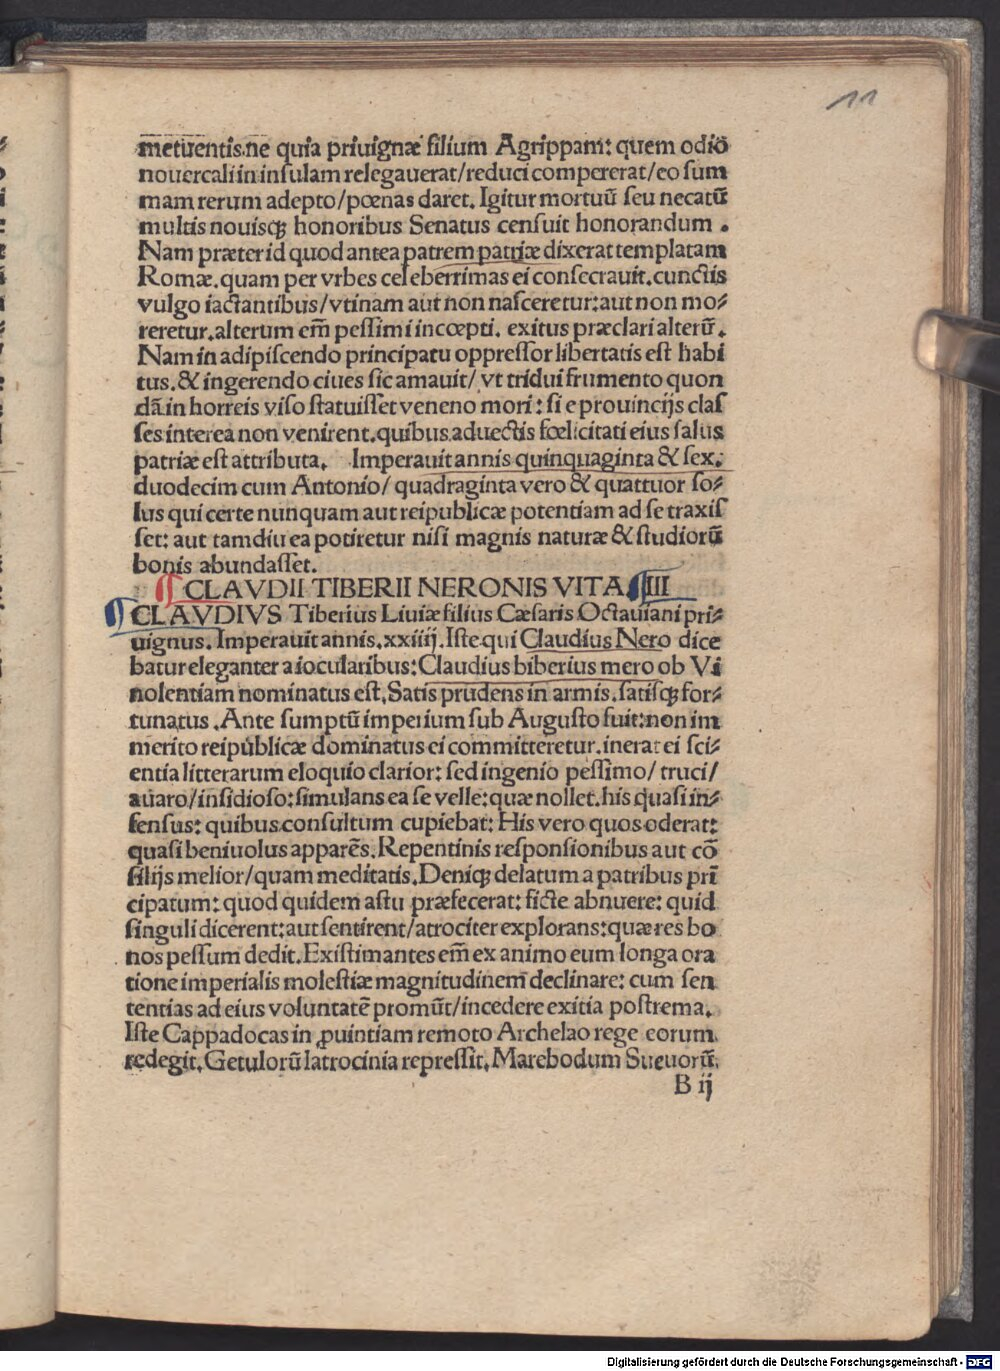 11
metuentis.ne quia priuignæ filium Agrippam: quem odiō
nouercali in insulam relegauerat/reduci compererat/eo sum
mam rerum adepto/pœnas daret. Igitur mortuū seu necatū
multis nouisqꝫ honoribus Senatus censuit honorandum .
Nam præter id quod antea patrem patriæ dixerat templa tam
Romæ.quam per vrbes celeberrimas ei consecrauit.cunctis
vulgo iactantibus/vtinam aut non nasceretur:aut non mo⸗
reretur.alterum em̄ pessimi incœpti. exitus præclari alterū.
Nam in adipiscendo principatu oppressor libertatis est habi
tus.& ingerendo ciues sic amauit/ vt tridui frumento quon
dā in horreis viso statuisset veneno mori: si e prouincijs clas
ses interea non venirent.quibus aduectis fœlicitati eius salus
patriæ est attributa. Imperauit annis quinquaginta & sex.
duodecim cum Antonio/ quadraginta vero & quattuor so⸗
lus qui certe nunquam aut reipublicæ potentiam ad se traxis
set: aut tamdiu ea potiretur nisi magnis naturæ & studiorū
bonis abundasset.
¶ CLAVDII TIBERII NERONIS VITA. ¶ III
¶ CLAVDIVS Tiberius Liuiæ filius Cæsaris Octauiani pri⸗
uignus. Imperauit annis.xxiiij.Iste qui Claudius Nero dice
batur eleganter a iocularibus:Claudius biberius mero ob Vi
nolentiam nominatus est.Satis prudens in armis.satisqꝫ for⸗
tunatus .Ante sumptū imperium sub Augusto fuit:non im
merito reipublicæ dominatus ei committeretur.inerat ei sci⸗
entia litterarum eloquio clarior: sed ingenio pessimo/ truci/
auaro/insidioso:simulans ea se velle:quæ nollet.his quasi in⸗
fensus: quibus consultum cupiebat: His vero quos oderat:
quasi beniuolus apparēs.Repentinis responsionibus aut cō
silijs melior/quam meditatis.Deniqꝫ delatum a patribus prī
cipatum: quod quidem astu præfecerat: ficte abnuere: quid
singuli dicerent:aut sentirent/atrociter explorans:quæ res bo
nos pessum dedit.Existimantes em̄ ex animo eum longa ora
tione imperialis molestiæ magnitudinem declinare: cum sen
tentias ad eius voluntatē promūt/incedere exitia postrema.
Iste Cappadocas in ꝓuintiam remoto Archelao rege eorum
redegit.Getulorū latrocinia repressit.Marebodum Sueuorū.
B ij
Digitalisierung gefördert durch die Deutsche Forschungsgemeinschaft - DFG